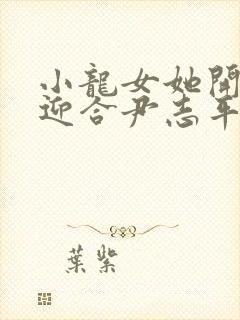 小龍女她開
迎合尹志平
葉紫